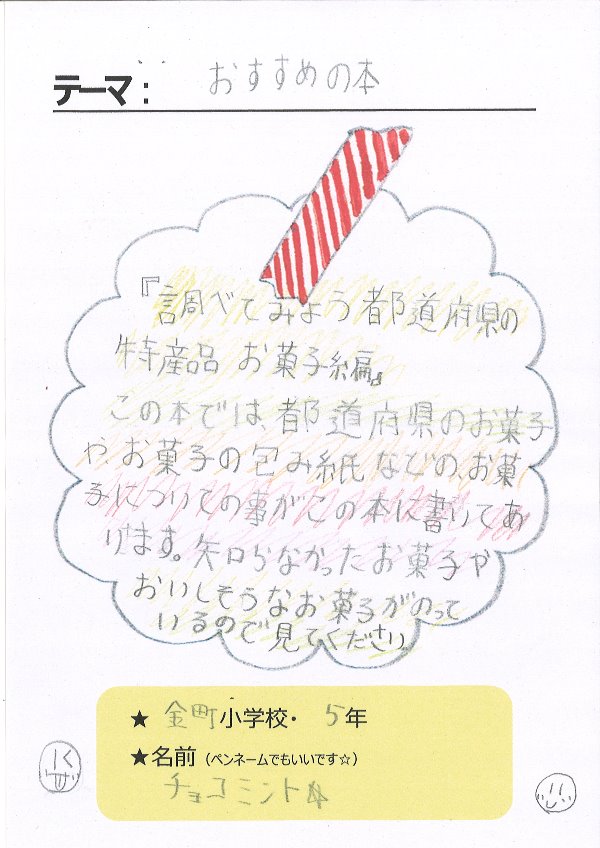 テーマ： おすすめの本
『調べてみよう都道府県の
特産品 お菓子編』
この本では、都道府県のお菓子
や、お菓子の包み紙などの、お菓
子についての事がこの本に書いてあ
ります。知らなかったお菓子や
おいしそうなお菓子がのって
いるので見てください。
★ 金町小学校・ 5年
★名前（ペンネームでもいいです☆）
チョコミント